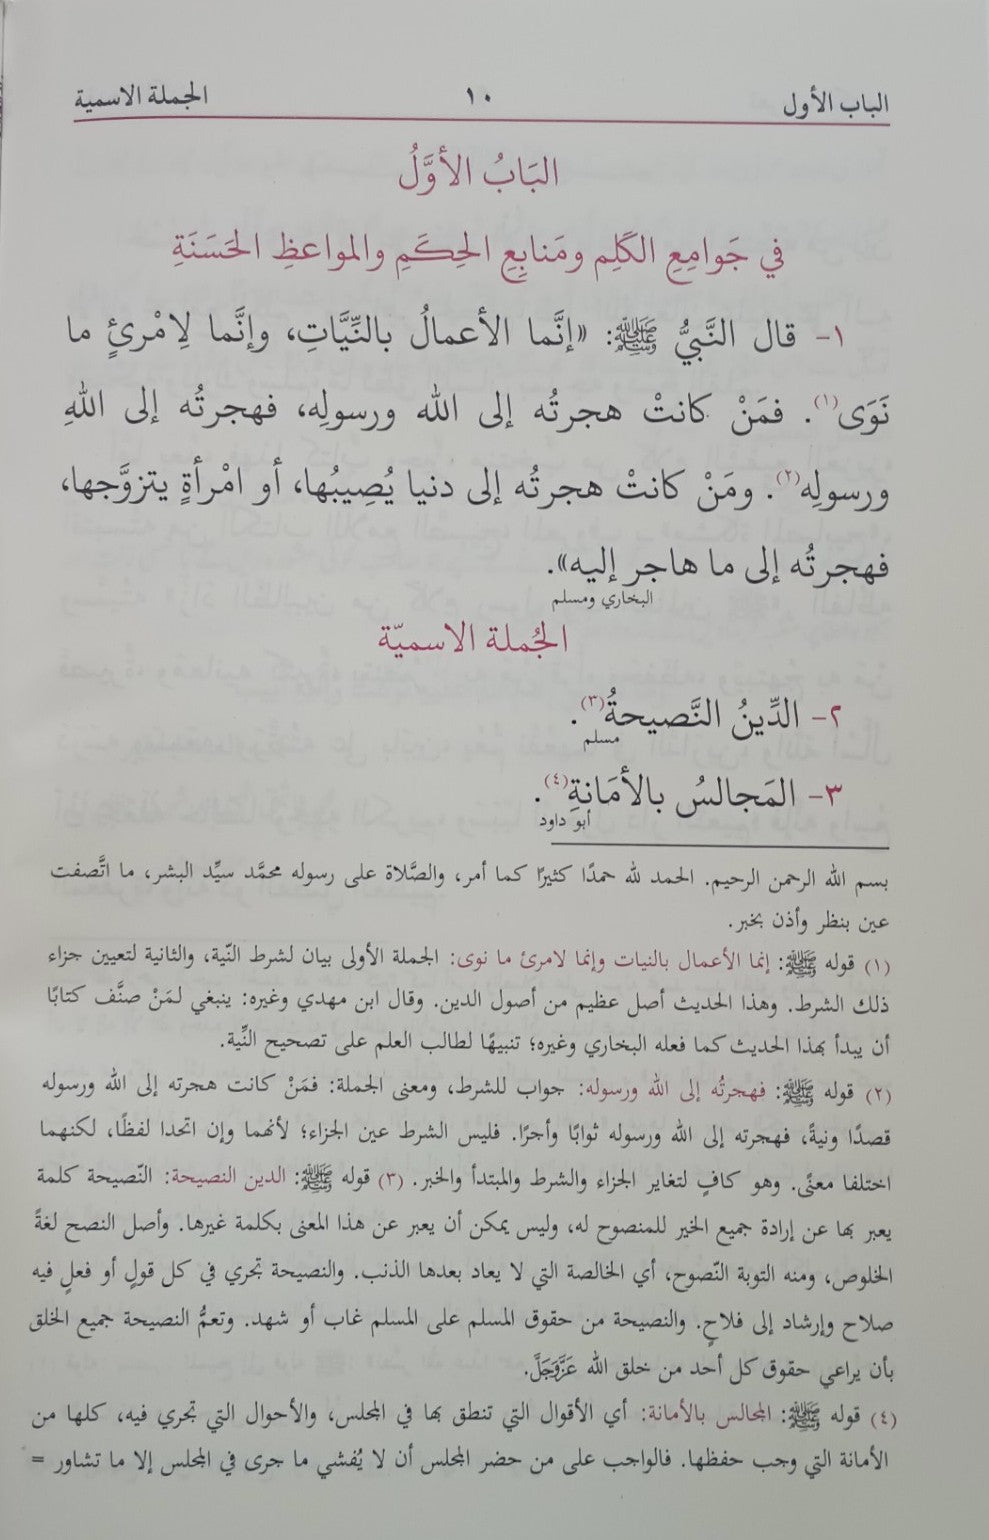 الباب الأول ١٠ الجملة الاسمية
البَابُ الأوَّلُ
في جَوامِعِ الكَلِم ومَنابِعِ الحِكَمِ والمواعظِ الحَسَنَةِ
١- قال النَّبيُّ ﷺ: «إنَّما الأعمالُ بالنِّيَّاتِ، وإنَّما لِامْرئٍ ما
نَوَى(١). فمَنْ كانتْ هجرتُه إلى الله ورسولِه، فهجرتُه إلى اللهِ
ورسولِه(٢). ومَنْ كانتْ هجرتُه إلى دنيا يُصِيبُها، أو امْرأةٍ يتزوَّجها،
فهجرتُه إلى ما هاجر إليه».
البخاري ومسلم
الجُملة الاسميّة
٢- الدِّينُ النَّصيحةُ(٣).
مسلم
٣- المَجالسُ بالأمَانةِ(٤).
أبو داود
بسم الله الرحمن الرحيم. الحمد لله حمدًا كثيرًا كما أمر، والصَّلاة على رسوله محمَّد سيِّد البشر، ما اتَّصفت
عين بنظر وأذن بخبر.
(١) قوله ﷺ: إنما الأعمال بالنيات وإنما لامرئ ما نوى: الجملة الأولى بيان لشرط النّية، والثانية لتعيين جزاء
ذلك الشرط. وهذا الحديث أصل عظيم من أصول الدين. وقال ابن مهدي وغيره: ينبغي لمَنْ صنَّف كتابًا
أن يبدأ بهذا الحديث كما فعله البخاري وغيره؛ تنبيهًا لطالب العلم على تصحيح النِّية.
(٢) قوله ﷺ: فهجرتُه إلى الله ورسوله: جواب للشرط، ومعنى الجملة: فمَنْ كانت هجرته إلى الله ورسوله
قصدًا ونيةً، فهجرته إلى الله ورسوله ثوابًا وأجرًا. فليس الشرط عين الجزاء؛ لأنهما وإن اتحدا لفظًا، لكنهما
اختلفا معنًى. وهو كافٍ لتغاير الجزاء والشرط والمبتدأ والخبر. (٣) قوله ﷺ: الدين النصيحة: النّصيحة كلمة
يعبر بها عن إرادة جميع الخير للمنصوح له، وليس يمكن أن يعبر عن هذا المعنى بكلمة غيرها. وأصل النصح لغةً
الخلوص، ومنه التوبة النّصوح، أي الخالصة التي لا يعاد بعدها الذنب. والنصيحة تجري في كل قولٍ أو فعلٍ فيه
صلاح وإرشاد إلى فلاحٍ. والنصيحة من حقوق المسلم على المسلم غاب أو شهد. وتعمُّ النصيحة جميع الخلق
بأن يراعي حقوق كل أحد من خلق الله عَزَّوَجَلَّ.
(٤) قوله ﷺ: المجالس بالأمانة: أي الأقوال التي تنطق بها في المجلس، والأحوال التي تجري فيه، كلها من
الأمانة التي وجب حفظها. فالواجب على من حضر المجلس أن لا يُفشي ما جرى في المجلس إلا ما تشاور =